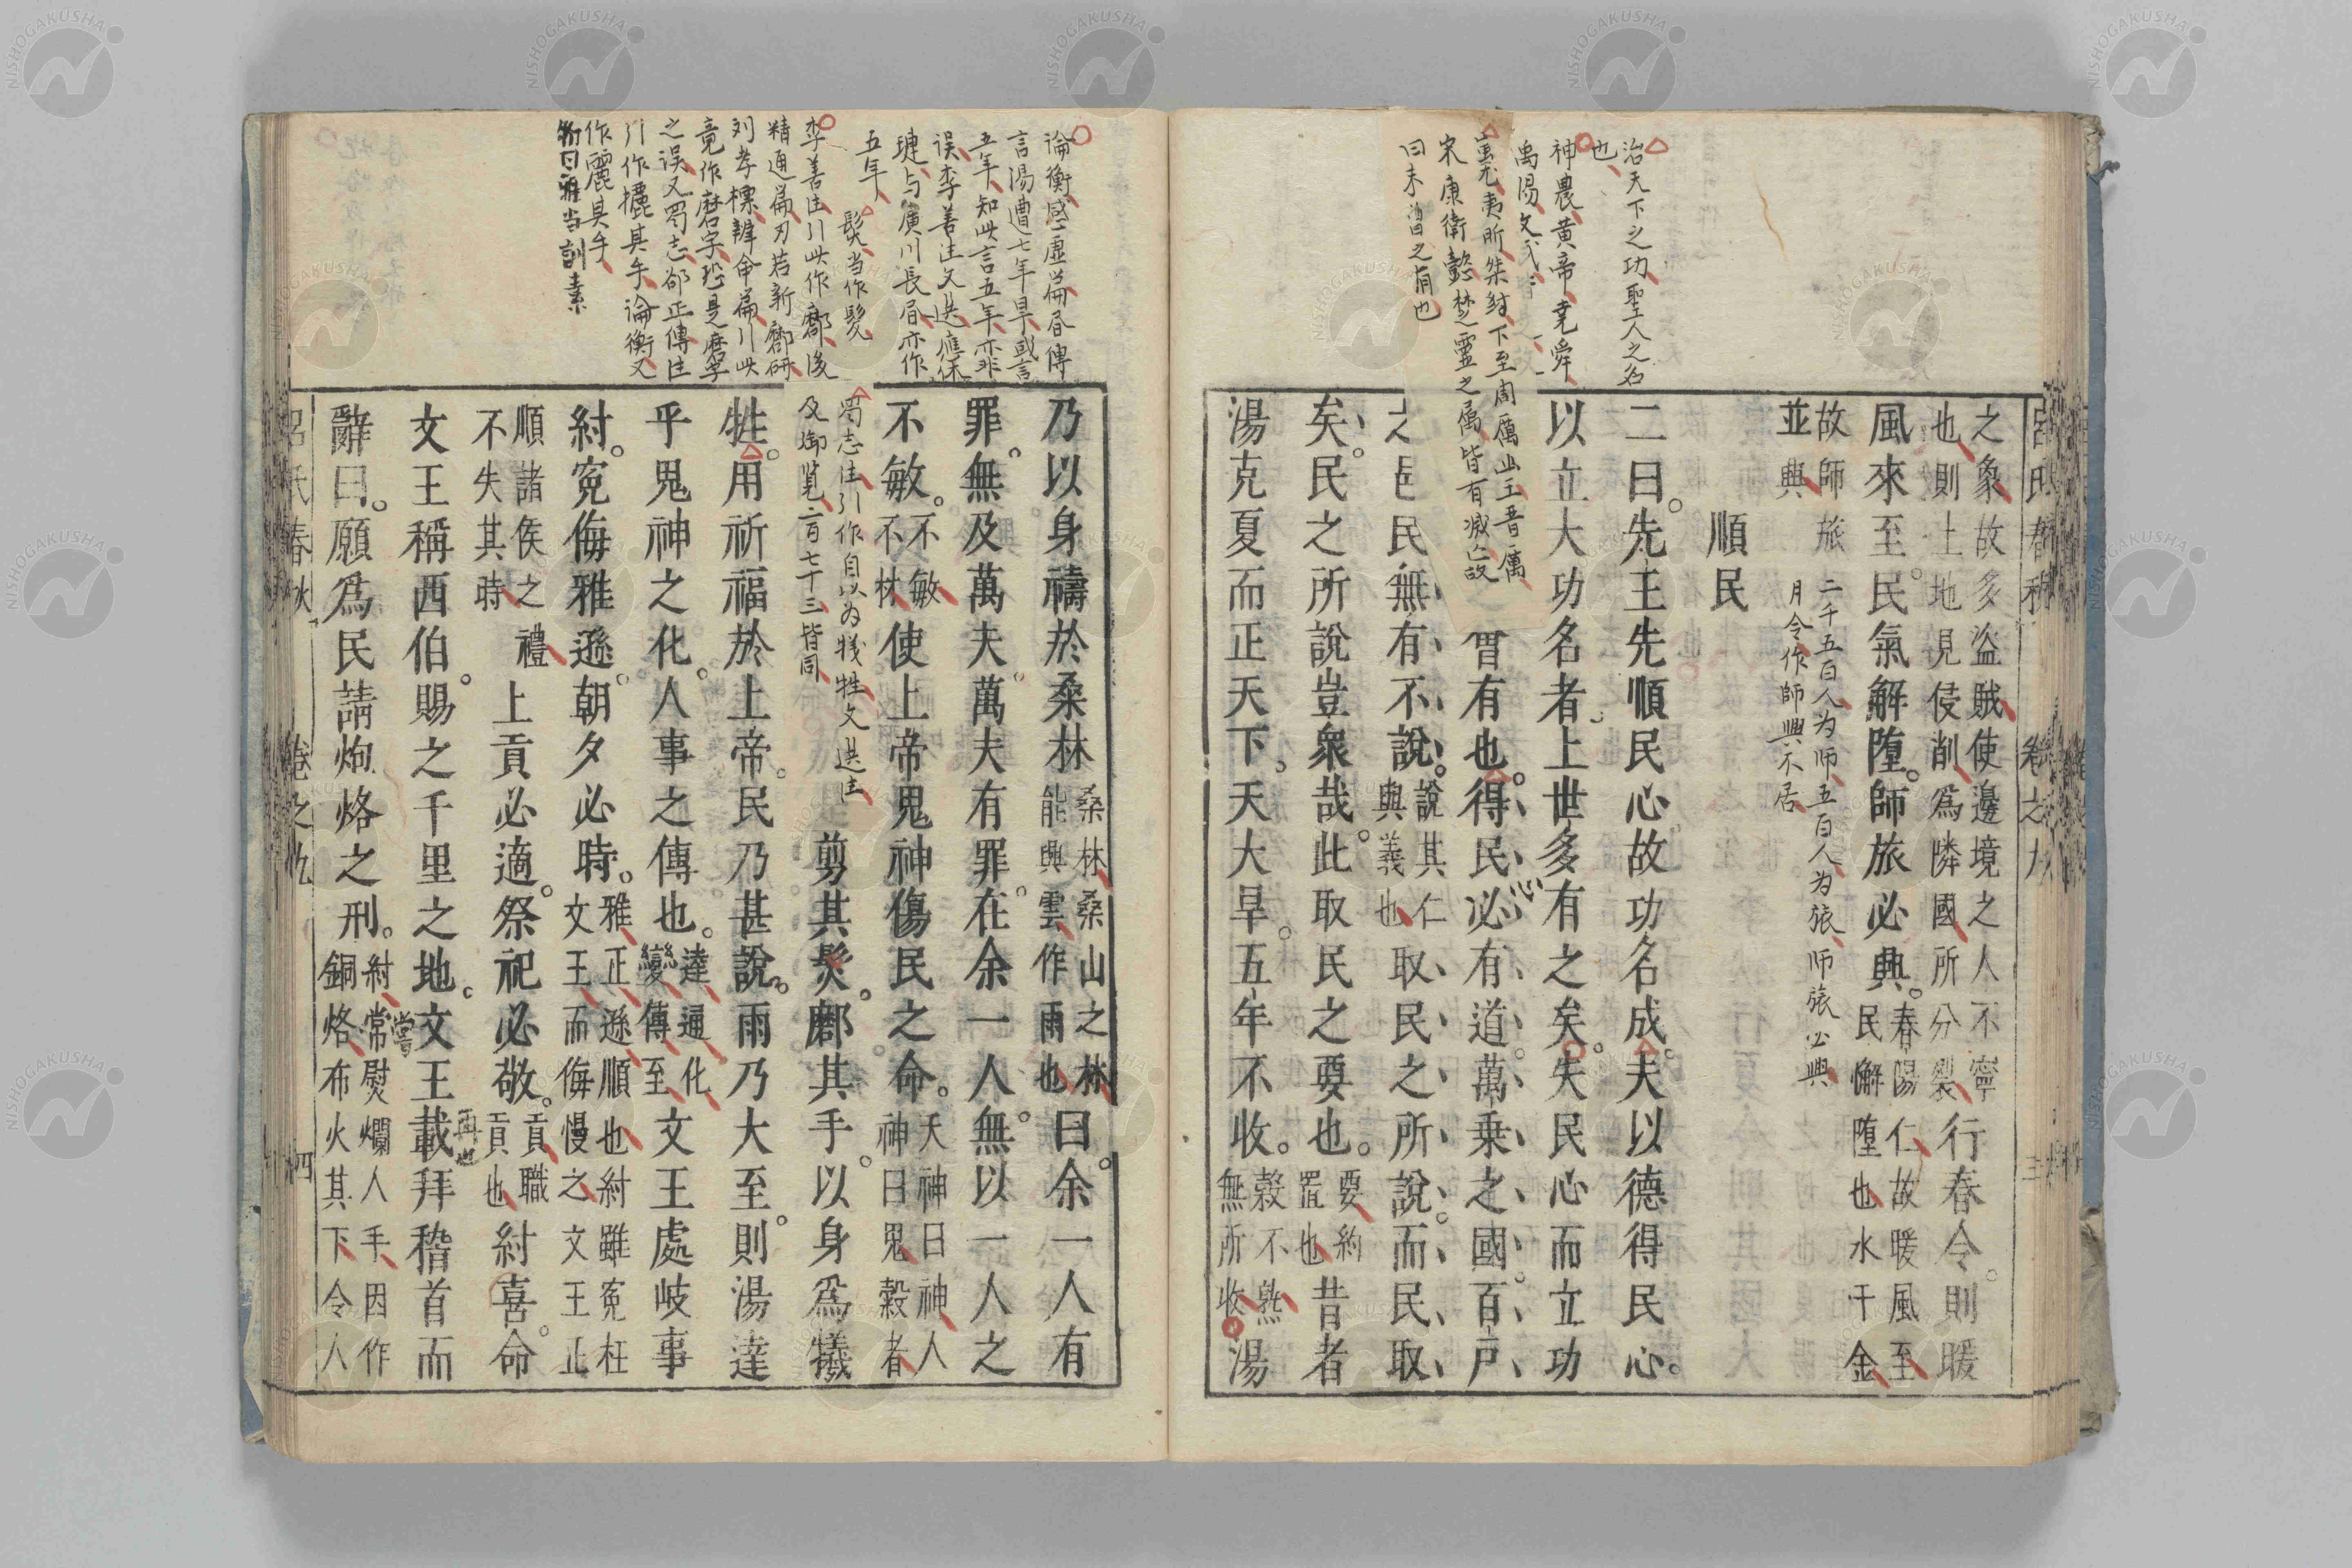 呂氏春秋 卷之九 三
之象故多盜賊使邊境之人不寧
也則土地見侵削為隣國所分裂
行春令則暖
風來至民氣解墮師旅必興
春陽仁故暖風至
民懈墮也水干金
故師旅
並興
二千五百人为师五百人为旅师旅必興
月令作師興不居
順民
二曰先王先順民心故功名成夫以德得民心
以立大功名者上世多有之矣失民心而立功
曾有也得民必有道萬乗之國百戸
民無有不說
說其仁
與義也
取民之所說而民取
矣民之所說豈衆哉此取民之要也
要約
置也
昔者
湯克夏而正天下天大旱五年不收
穀不熟
無所收
湯
治天下之功聖人之名
也
神農黄帝尭舜
禹湯文武
桀紂下至周厲幽王晋厲
宋康衛懿楚霊之属皆有滅故
曰未嘗之有也
心
乃以身禱於桑林
桑林桑山之林
能興雲作雨也
曰余一人有
罪無及萬夫萬夫有罪在余一人無以一人之
不敏
不敏
不材
使上帝鬼神傷民之命
天神曰神人
神曰鬼穀者
剪其髮鄜其手以身為犧
牲用祈福於上帝民乃甚說雨乃大至則湯達
乎鬼神之化人事之傳也
達通化
變傳至
文王處岐事
紂寃侮雅遜朝夕必時
雅正遜順也紂雖寃枉
文王而侮慢之文王正
順諸侯之禮
不失其時
上貢必適祭祀必敬
貢職
貢也
紂喜命
文王稱西伯賜之千里之地文王載拜稽首而
再也
辭曰願為民請炮烙之刑
紂常熨爛人手因作
銅烙布火其下令人
嘗
呂氏春秋 卷之九 四
論衡感虛篇昬傳
言湯遭七年旱或言
五年知此言五年亦非
误李善注文选應休
璉与廣川長昬亦作
五年
髮当作髮
李善注引此作鄜後
精通篇刃若新鄜研
刘孝標辨命篇引此
竟作磨字恐是磨字
之误又蜀志郤正傳注
引作攦其手論衡又
作麗其手
衡曰雅当訓素
蜀志注引作自以为犠牲文选注
及御覧二百七十三皆同